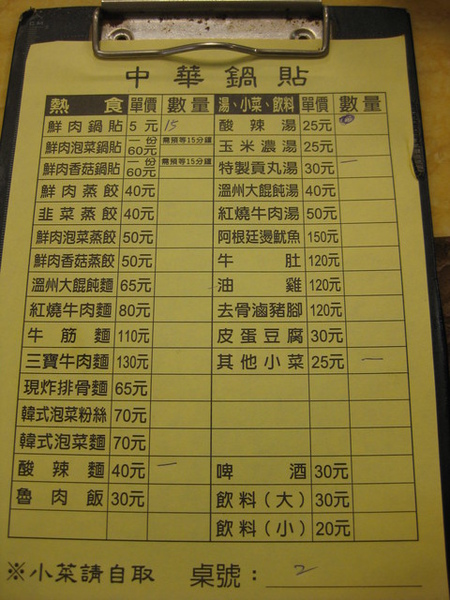 中華鍋貼
熱食 單價 數量 湯、小菜、飲料 單價 數量
鮮肉鍋貼 5元 15 酸辣湯 25元
鮮肉泡菜鍋貼 一份60元 需預等15分鐘 玉米濃湯 25元
鮮肉香菇鍋貼 一份60元 需預等15分鐘 特製貢丸湯 30元 一
鮮肉蒸餃 40元 溫州大餛飩湯 40元
韭菜蒸餃 40元 紅燒牛肉湯 50元
鮮肉泡菜蒸餃 50元 阿根廷燙魷魚 150元
鮮肉香菇蒸餃 50元 牛肚 120元
溫州大餛飩麵 65元 油雞 120元
紅燒牛肉麵 80元 去骨滷豬腳 120元
牛筋麵 110元 皮蛋豆腐 30元
三寶牛肉麵 130元 其他小菜 25元 一
現炸排骨麵 65元
韓式泡菜粉絲 70元
韓式泡菜麵 70元
酸辣麵 40元 一 啤酒 30元
魯肉飯 30元 飲料(大) 30元
飲料(小) 20元
※小菜請自取 桌號: 2